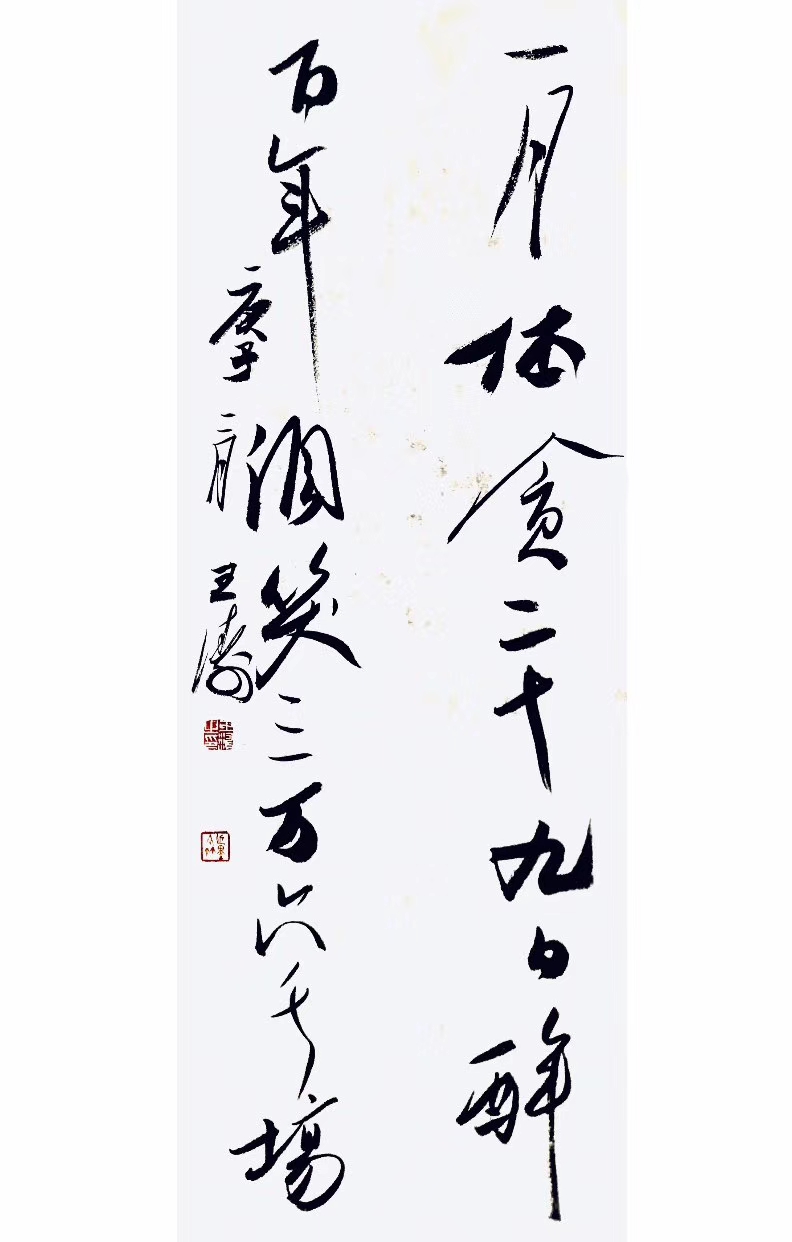 一月杯贪二十九日醉
百年笑三万六千场
庚子二月王涛